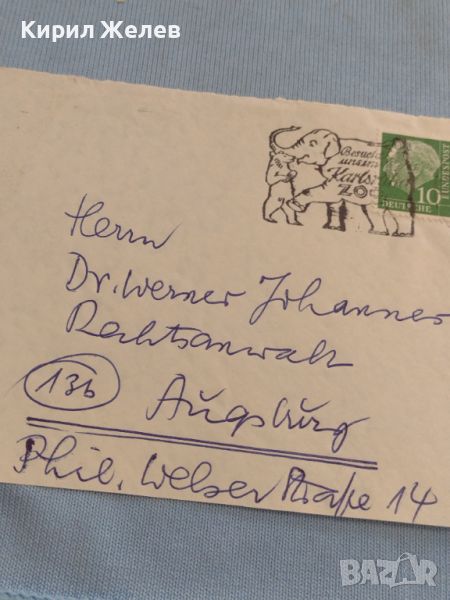 Кирил Желев
Besucht
unseren
Karlsr
ZOO
10
DEUTSCHE
BUNDESPOST
Herrn
Dr. Werner Johannes
Rechtsanwalt
13b Augsburg
Phil. Welser Straße 14
BAZAR